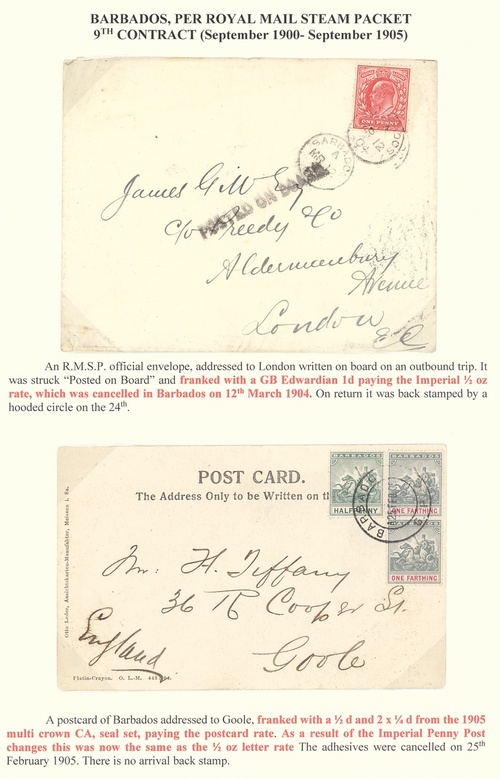 BARBADOS, PER ROYAL MAIL STEAM PACKET
9TH CONTRACT (September 1900- September 1905)
ONE PENNY
BARBADOS
A
MR
12
04
POSTED ON BOARD
James Gill Esq
c/o Greedy & Co
Aldermanbury
Avenue
London
EC
An R.M.S.P. official envelope, addressed to London written on board on an outbound trip. It
was struck “Posted on Board” and franked with a GB Edwardian 1d paying the Imperial ½ oz
rate, which was cancelled in Barbados on 12th March 1904. On return it was back stamped by a
hooded circle on the 24th.
POST CARD.
The Address Only to be Written on th
BARBADOS
BARBADOS
HALFPENNY
ONE FARTHING
BARBADOS
ONE FARTHING
BARBADOS
Otto Leder, Ansichtskarten-Manufaktur, Meissen i. Sa.
Mr. H. Tiffany
36 Cooper St.
Goole
England
Platin-Crayon. O. L.-M.
A postcard of Barbados addressed to Goole, franked with a ½ d and 2 x ¼ d from the 1905
multi crown CA, seal set, paying the postcard rate. As a result of the Imperial Penny Post
changes this was now the same as the ½ oz letter rate The adhesives were cancelled on 25th
February 1905. There is no arrival back stamp.